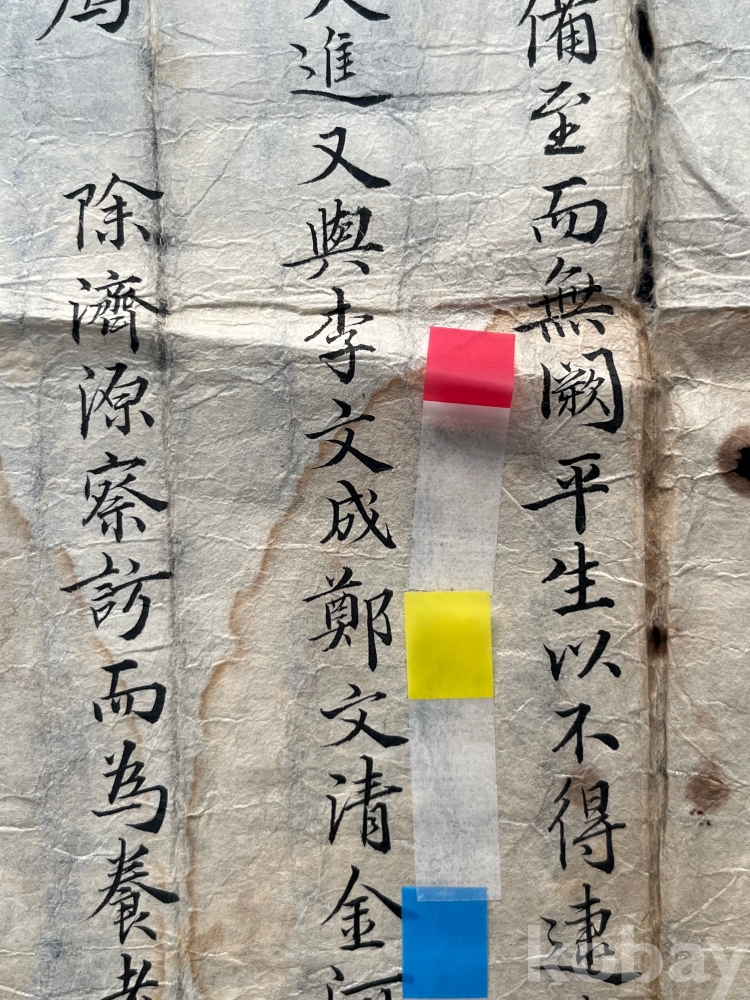 備至而無闕平生以不得逮
進又與李文成鄭文清金河
除濟源察訪而為養老
kobay